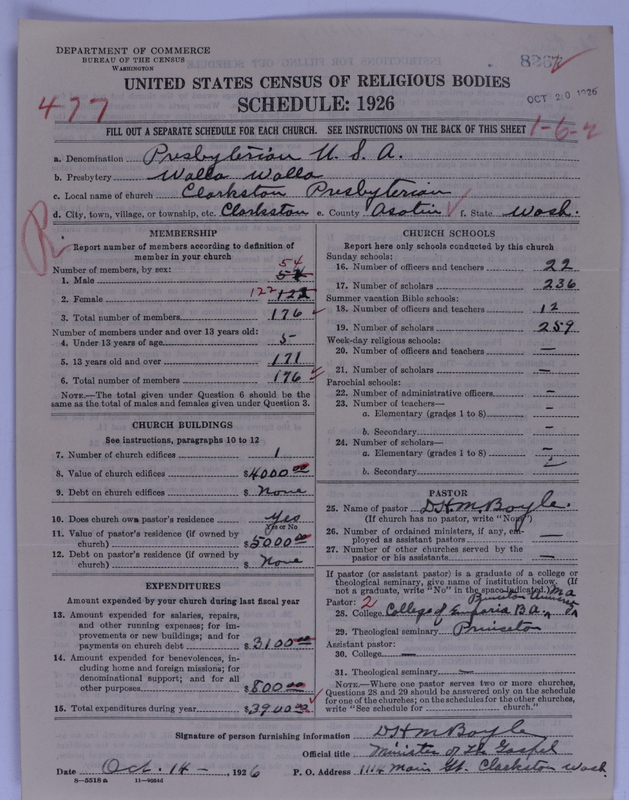 DEPARTMENT OF COMMERCE
BUREAU OF THE CENSUS
WASHINGTON
OCT 20 1926
UNITED STATES CENSUS OF RELIGIOUS BODIES
SCHEDULE: 1926
477
FILL OUT A SEPARATE SCHEDULE FOR EACH CHURCH. SEE INSTRUCTIONS ON THE BACK OF THIS SHEET
1-6-2
a. Denomination Presbyterian U. S. A.
b. Presbytery Walla Walla
c. Local name of church Clarkston Presbyterian
d. City, town, village, or township, etc. Clarkston e. County Asotin f. State Wash.
R.
MEMBERSHIP
Report number of members according to definition of
member in your church
Number of members, by sex: 54
1. Male
2. Female 122
3. Total number of members 176
Number of members under and over 13 years old:
4. Under 13 years of age 5
5. 13 years old and over 171
6. Total number of members 176
NOTE.—The total given under Question 6 should be the
same as the total of males and females given under Question 3.
CHURCH BUILDINGS
See instructions, paragraphs 10 to 12
7. Number of church edifices 1
8. Value of church edifices $4000 00
9. Debt on church edifices $ None
10. Does church own pastor's residence Yes
Yes or No
11. Value of pastor's residence (if owned by
church) $5000 00
12. Debt on pastor's residence (if owned by
church) $ None
EXPENDITURES
Amount expended by your church during last fiscal year
13. Amount expended for salaries, repairs,
and other running expenses; for im-
provements or new buildings; and for
payments on church debt $3100 00
14. Amount expended for benevolences, in-
cluding home and foreign missions; for
denominational support; and for all
other purposes $800 00
15. Total expenditures during year $3900
CHURCH SCHOOLS
Report here only schools conducted by this church
Sunday schools:
16. Number of officers and teachers 22
17. Number of scholars 236
Summer vacation Bible schools:
18. Number of officers and teachers 12
19. Number of scholars 259
Week-day religious schools:
20. Number of officers and teachers —
21. Number of scholars —
Parochial schools:
22. Number of administrative officers —
23. Number of teachers—
a. Elementary (grades 1 to 8) —
b. Secondary —
24. Number of scholars—
a. Elementary (grades 1 to 8) —
b. Secondary
PASTOR
25. Name of pastor D H McBoyle.
(If church has no pastor, write "None")
26. Number of ordained ministers, if any, em-
ployed as assistant pastors —
27. Number of other churches served by the
pastor or his assistants —
If pastor (or assistant pastor) is a graduate of a college or
theological seminary, give name of institution below. (If
not a graduate, write "No" in the space indicated.) M A
Pastor: 2 Princeton
28. College College of Emporia B.A.
29. Theological seminary Princeton
Assistant pastor:
30. College —
31. Theological seminary —
NOTE.—Where one pastor serves two or more churches,
Questions 28 and 29 should be answered only on the schedule
for one of the churches; on the schedules for the other churches,
write "See schedule for church."
Signature of person furnishing information D H McBoyle
Official title Minister of the Gospel
Date Oct. 14 -, 1926 P. O. Address 1114 Main St. Clarkston Wash.
8—5518a 11—9034d